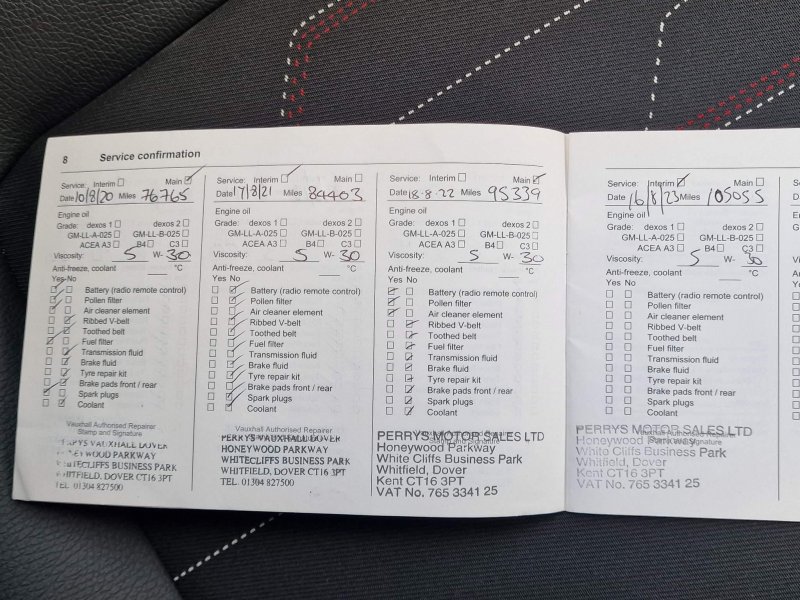 8 Service confirmation
Service: Interim Main
Date 10/8/20 Miles 76765
Engine oil
Grade: dexos 1 dexos 2
GM-LL-A-025 GM-LL-B-025
ACEA A3 B4 C3
Viscosity: 5 W- 30
Anti-freeze, coolant °C
Yes No
Battery (radio remote control)
Pollen filter
Air cleaner element
Ribbed V-belt
Toothed belt
Fuel filter
Transmission fluid
Brake fluid
Tyre repair kit
Brake pads front / rear
Spark plugs
Coolant
Vauxhall Authorised Repairer
Stamp and Signature
VAUXHALL DOVER
HONEYWOOD PARKWAY
WHITECLIFFS BUSINESS PARK
WHITFIELD, DOVER CT16 3PT
TEL. 01304 827500
Service: Interim Main
Date 17/8/21 Miles 84403
Engine oil
Grade: dexos 1 dexos 2
GM-LL-A-025 GM-LL-B-025
ACEA A3 B4 C3
Viscosity: 5 W- 30
Anti-freeze, coolant °C
Yes No
Battery (radio remote control)
Pollen filter
Air cleaner element
Ribbed V-belt
Toothed belt
Fuel filter
Transmission fluid
Brake fluid
Tyre repair kit
Brake pads front / rear
Spark plugs
Coolant
Vauxhall Authorised Repairer
PERRYS VAUXHALL DOVER
HONEYWOOD PARKWAY
WHITECLIFFS BUSINESS PARK
WHITFIELD, DOVER CT16 3PT
TEL. 01304 827500
Service: Interim Main
Date 18-8-22 Miles 95339
Engine oil
Grade: dexos 1 dexos 2
GM-LL-A-025 GM-LL-B-025
ACEA A3 B4 C3
Viscosity: 5 W- 30
Anti-freeze, coolant °C
Yes No
Battery (radio remote control)
Pollen filter
Air cleaner element
Ribbed V-belt
Toothed belt
Fuel filter
Transmission fluid
Brake fluid
Tyre repair kit
Brake pads front / rear
Spark plugs
Coolant
Vauxhall Authorised Repairer
Stamp and Signature
PERRYS MOTOR SALES LTD
Honeywood Parkway
White Cliffs Business Park
Whitfield, Dover
Kent CT16 3PT
VAT No. 765 3341 25
Service: Interim Main
Date 16/8/23 Miles 105055
Engine oil
Grade: dexos 1 dexos 2
GM-LL-A-025 GM-LL-B-025
ACEA A3 B4 C3
Viscosity: 5 W- 30
Anti-freeze, coolant °C
Yes No
Battery (radio remote control)
Pollen filter
Air cleaner element
Ribbed V-belt
Toothed belt
Fuel filter
Transmission fluid
Brake fluid
Tyre repair kit
Brake pads front / rear
Spark plugs
Coolant
Vauxhall Authorised Repairer
Stamp and Signature
PERRYS MOTOR SALES LTD
Honeywood Parkway
White Cliffs Business Park
Whitfield, Dover
Kent CT16 3PT
VAT No. 765 3341 25